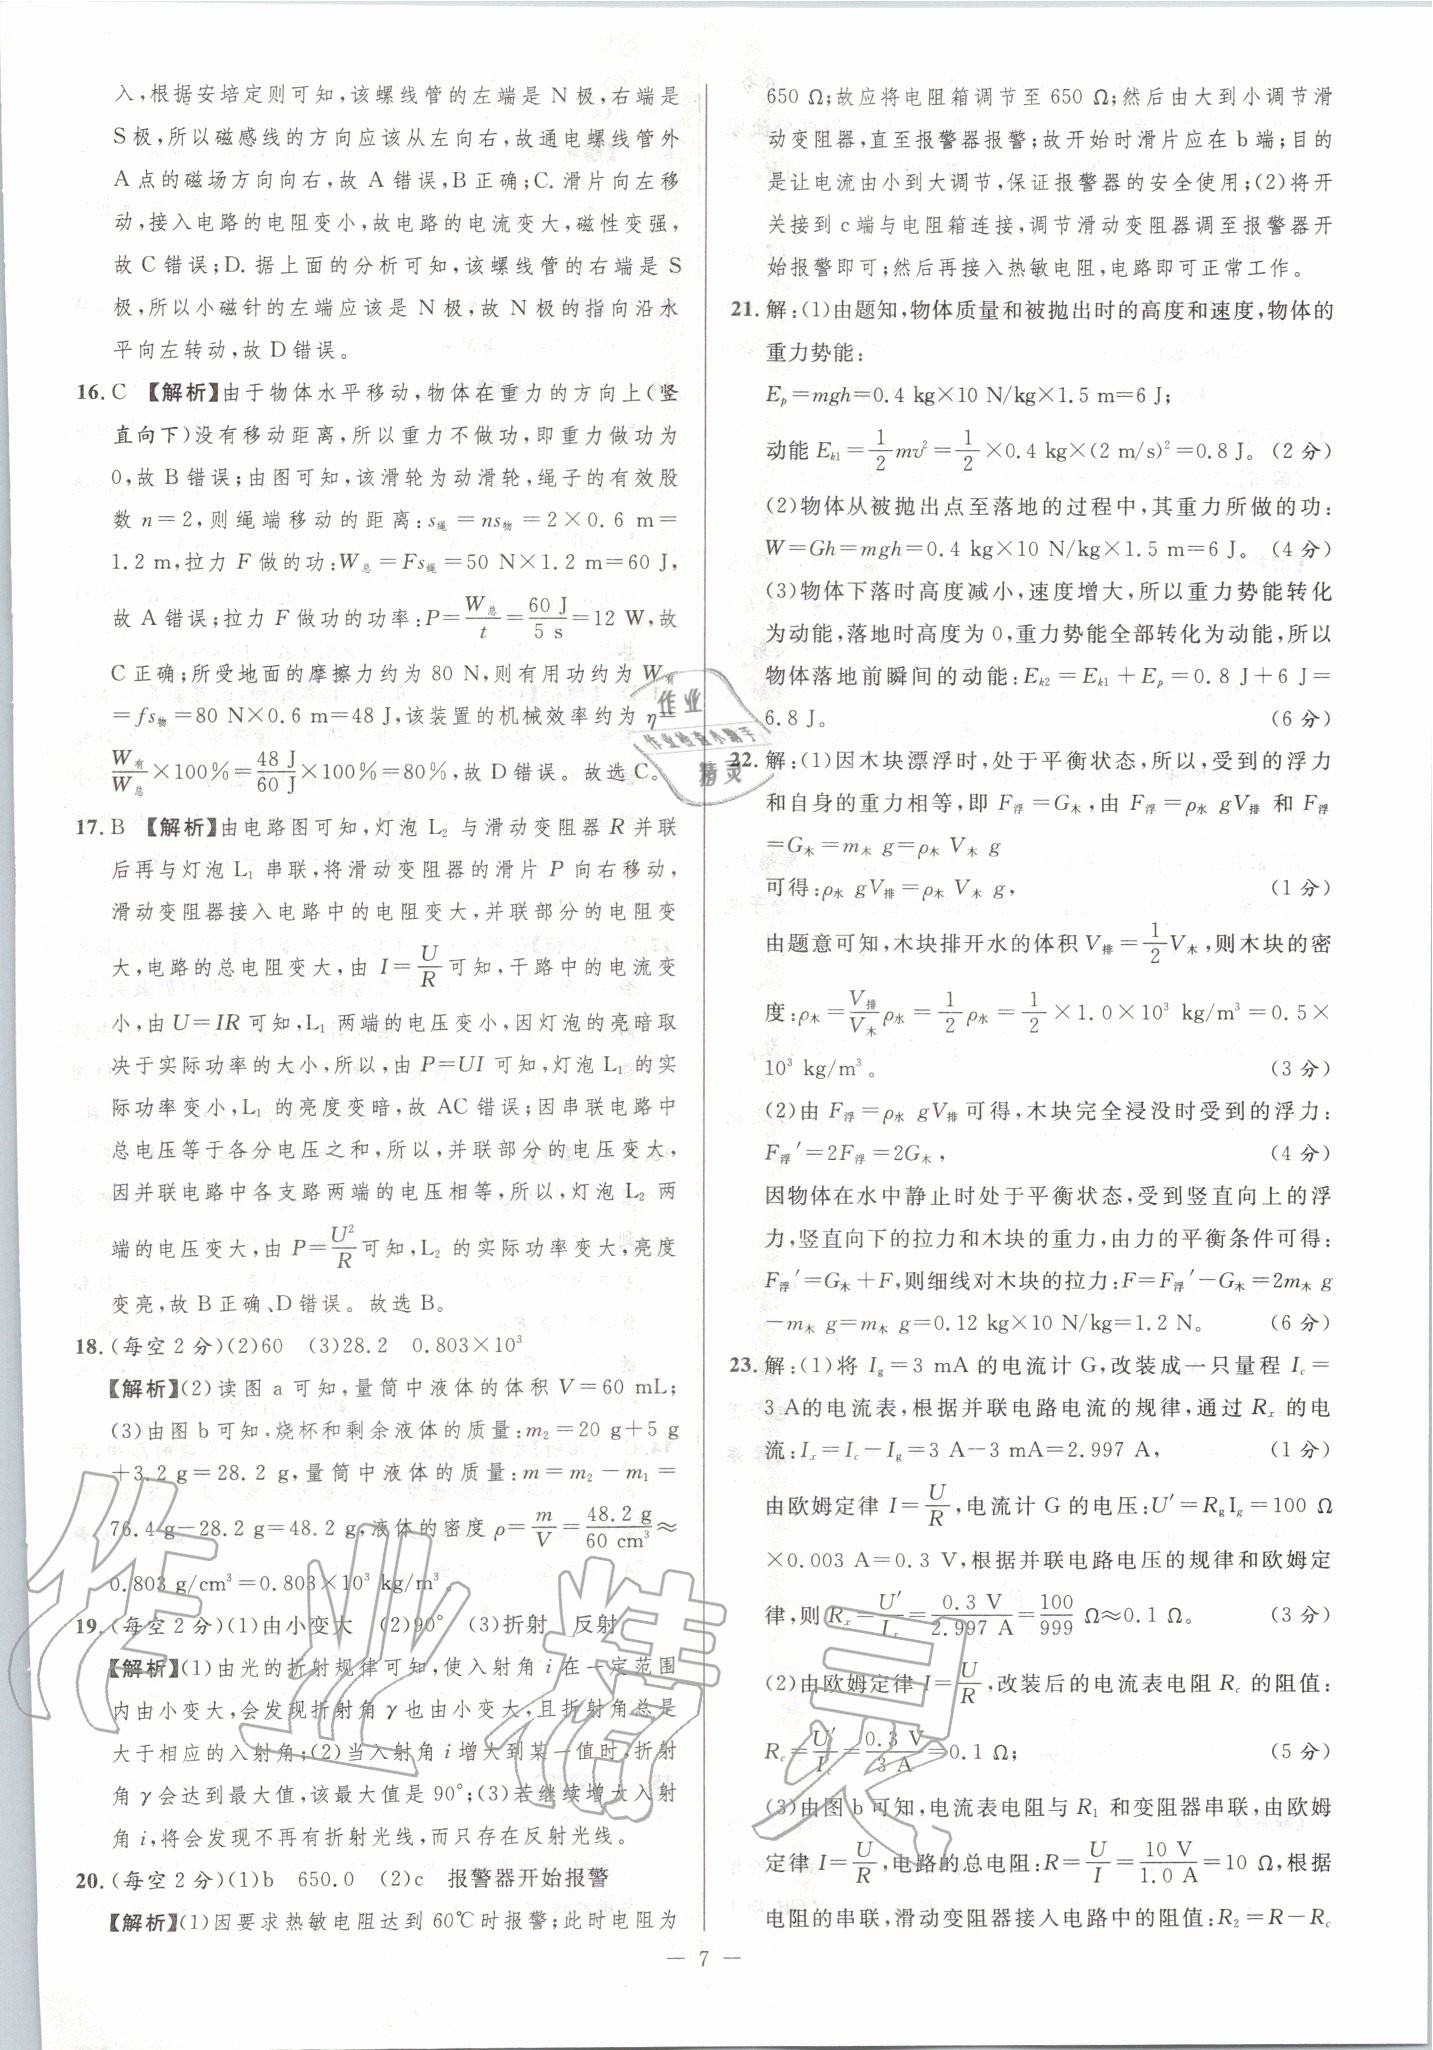 入,根据安培定则可知,该螺线管的左端是 N极,右端是
S极,所以磁感线的方向应该从左向右,故通电螺线管外
A点的磁场方向向右,故 A错误,B正确;C.滑片向左移
动,接入电路的电阻变小,故电路的电流变大,磁性变强,
故C错误;D.据上面的分析可知,该螺线管的右端是 S
极,所以小磁针的左端应该是 N极,故 N极的指向沿水
平向左转动,故 D错误。
16. C 【解析】由于物体水平移动,物体在重力的方向上(竖
直向下)没有移动距离,所以重力不做功,即重力做功为
0,故 B错误;由图可知,该滑轮为动滑轮,绳子的有效股
数 n=2,则绳端移动的距离:s绳=ns物=2×0.6 m=
1.2 m,拉力 F做的功:W总=Fs绳=50 N×1.2 m=60 J,
故 A错误;拉力 F做功的功率:P=W总/t=60 J/5 s=12 W,故
C正确;所受地面的摩擦力约为 80 N,则有用功约为 W有
=fs物=80 N×0.6 m=48 J,该装置的机械效率约为 η=
W有/W总×100%=48 J/60 J×100%=80%,故 D错误。故选C。
17. B 【解析】由电路图可知,灯泡 L₂ 与滑动变阻器 R并联
后再与灯泡 L₁ 串联,将滑动变阻器的滑片 P向右移动,
滑动变阻器接入电路中的电阻变大,并联部分的电阻变
大,电路的总电阻变大,由 I=U/R可知,干路中的电流变
小,由U=IR可知,L₁ 两端的电压变小,因灯泡的亮暗取
决于实际功率的大小,所以,由 P=UI可知,灯泡 L₁ 的实
际功率变小,L₁ 的亮度变暗,故 AC错误;因串联电路中
总电压等于各分电压之和,所以,并联部分的电压变大,
因并联电路中各支路两端的电压相等,所以,灯泡 L₂ 两
端的电压变大,由 P=U²/R可知,L₂ 的实际功率变大,亮度
变亮,故 B正确、D错误。故选 B。
18. (每空2分)(2)60 (3)28.2 0.803×10³
【解析】(2)读图 a可知,量筒中液体的体积 V=60 mL;
(3)由图 b可知,烧杯和剩余液体的质量:m₂=20 g+5 g
+3.2 g=28.2 g,量筒中液体的质量:m=m₂-m₁=
76.4 g-28.2 g=48.2 g,液体的密度 ρ=m/V=48.2 g/60 cm³≈
0.803 g/cm³=0.803×10³ kg/m³。
19. (每空2分)(1)由小变大 (2)90° (3)折射 反射
【解析】(1)由光的折射规律可知,使入射角 i在一定范围
内由小变大,会发现折射角γ也由小变大,且折射角总是
大于相应的入射角;(2)当入射角i增大到某一值时,折射
角γ会达到最大值,该最大值是 90°;(3)若继续增大入射
角i,将会发现不再有折射光线,而只存在反射光线。
20. (每空2分)(1)b 650.0 (2)c 报警器开始报警
【解析】(1)因要求热敏电阻达到60℃时报警;此时电阻为
650 Ω;故应将电阻箱调节至650 Ω;然后由大到小调节滑
动变阻器,直至报警器报警;故开始时滑片应在 b端;目的
是让电流由小到大调节,保证报警器的安全使用;(2)将开
关接到 c端与电阻箱连接,调节滑动变阻器调至报警器开
始报警即可;然后再接入热敏电阻,电路即可正常工作。
21. 解:(1)由题知,物体质量和被抛出时的高度和速度,物体的
重力势能:
Eₚ=mgh=0.4 kg×10 N/kg×1.5 m=6 J;
动能 Ek1=1/2mv²=1/2×0.4 kg×(2 m/s)²=0.8 J。(2分)
(2)物体从被抛出点至落地的过程中,其重力所做的功:
W=Gh=mgh=0.4 kg×10 N/kg×1.5 m=6 J。(4分)
(3)物体下落时高度减小,速度增大,所以重力势能转化
为动能,落地时高度为0,重力势能全部转化为动能,所以
物体落地前瞬间的动能:Ek2=Ek1+Eₚ=0.8 J+6 J=
6.8 J。 (6分)
22. 解:(1)因木块漂浮时,处于平衡状态,所以,受到的浮力
和自身的重力相等,即 F浮=G木,由 F浮=ρ水 gV排 和 F浮
=G木=m木 g=ρ木 V木 g
可得:ρ水 gV排=ρ木 V木 g, (1分)
由题意可知,木块排开水的体积 V排=1/2V木,则木块的密
度:ρ木=V排/V木ρ水=1/2ρ水=1/2×1.0×10³ kg/m³=0.5×
10³ kg/m³。 (3分)
(2)由 F浮=ρ水 gV排 可得,木块完全浸没时受到的浮力:
F浮′=2F浮=2G木, (4分)
因物体在水中静止时处于平衡状态,受到竖直向上的浮
力,竖直向下的拉力和木块的重力,由力的平衡条件可得:
F浮′=G木+F,则细线对木块的拉力:F=F浮′-G木=2m木 g
-m木 g=m木 g=0.12 kg×10 N/kg=1.2 N。 (6分)
23. 解:(1)将 Ig=3 mA的电流计 G,改装成一只量程 Ic=
3 A的电流表,根据并联电路电流的规律,通过 Rx 的电
流:Ix=Ic-Ig=3 A-3 mA=2.997 A, (1分)
由欧姆定律 I=U/R,电流计 G的电压:U′=RgIg=100 Ω
×0.003 A=0.3 V,根据并联电路电压的规律和欧姆定
律,则 Rx=U′/Ix=0.3 V/2.997 A=100/999 Ω≈0.1 Ω。 (3分)
(2)由欧姆定律 I=U/R,改装后的电流表电阻 Rc 的阻值:
Rc=U′/Ic=0.3 V/3 A=0.1 Ω; (5分)
(3)由图 b可知,电流表电阻与 R₁ 和变阻器串联,由欧姆
定律 I=U/R,电路的总电阻:R=U/I=10 V/1.0 A=10 Ω,根据
电阻的串联,滑动变阻器接入电路中的阻值:R₂=R-Rc
— 7 —
作业
作业检查小助手
精灵
作业精灵